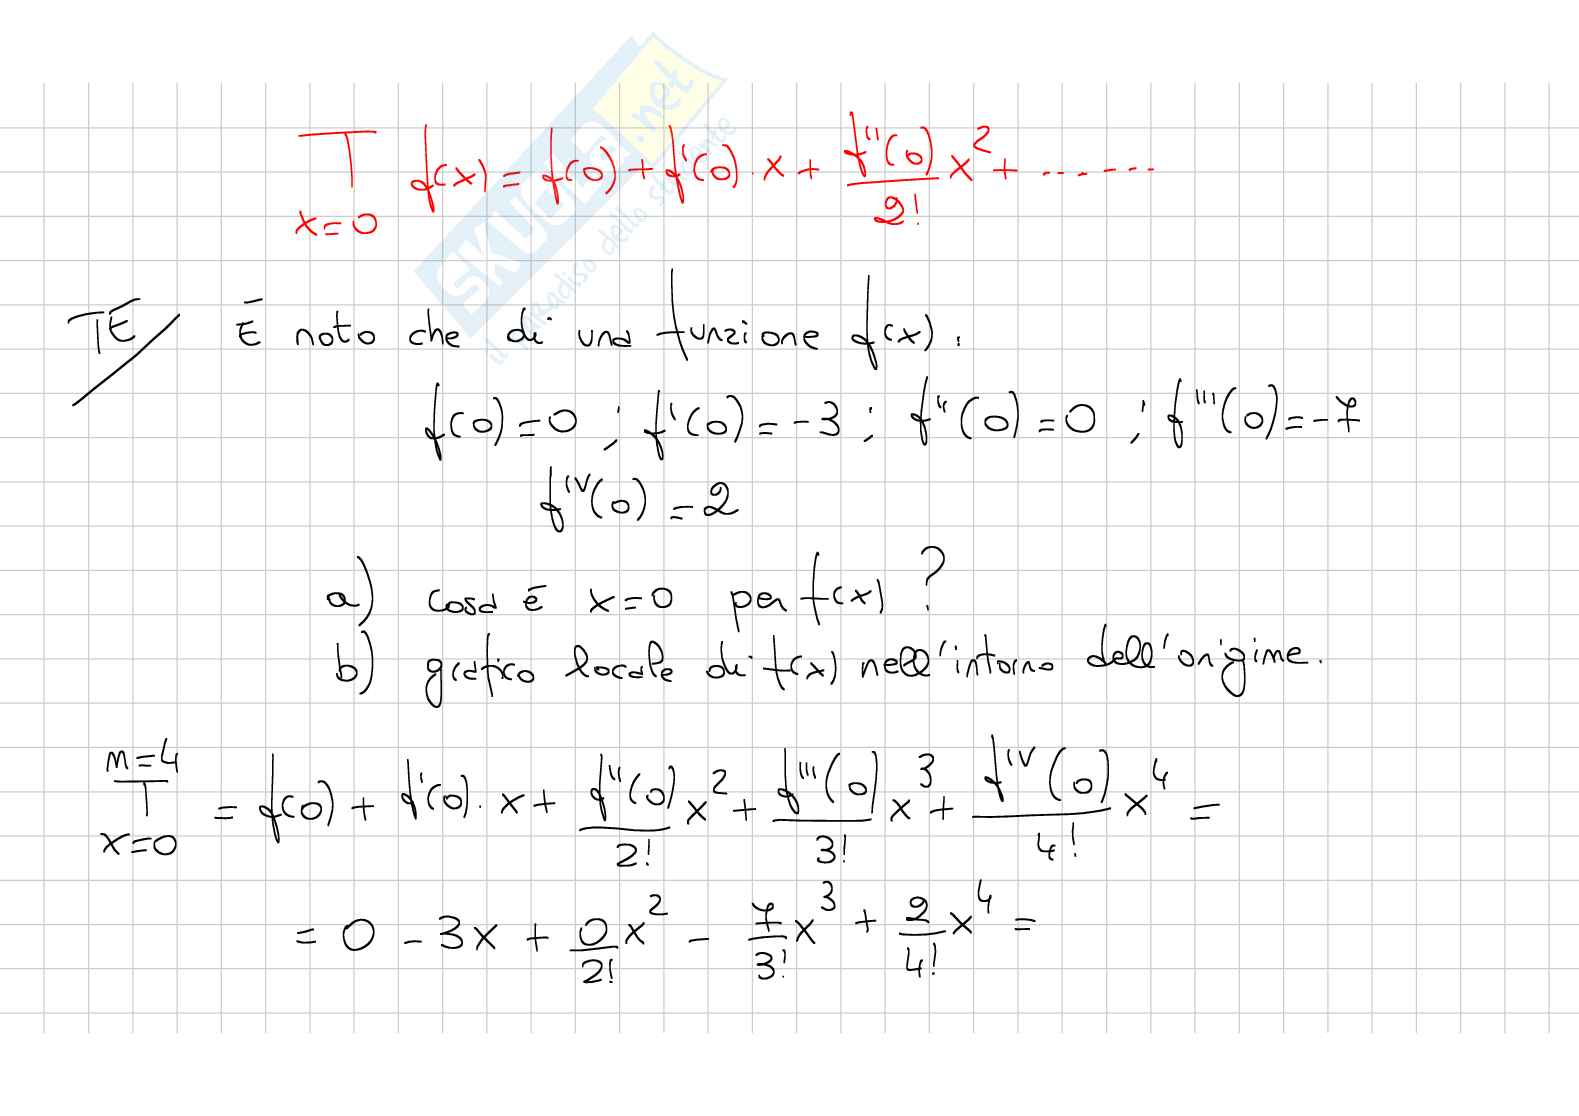 T f(x) = f(0) + f'(0) · x + f''(0)/2! x² + .......
x=0
SKUOLA.net
il paradiso dello studente
TE È noto che di una funzione f(x).
f(0)=0 ; f'(0)=-3 ; f''(0)=0 ; f'''(0)=-7
f^IV(0)=2
a) cosa è x=0 per f(x) ?
b) grafico locale di f(x) nell'intorno dell'origine.
m=4
T = f(0) + f'(0) · x + f''(0)/2! x² + f'''(0)/3! x³ + f^IV(0)/4! x⁴ =
x=0
= 0 - 3x + 0/2! x² - 7/3! x³ + 2/4! x⁴ =